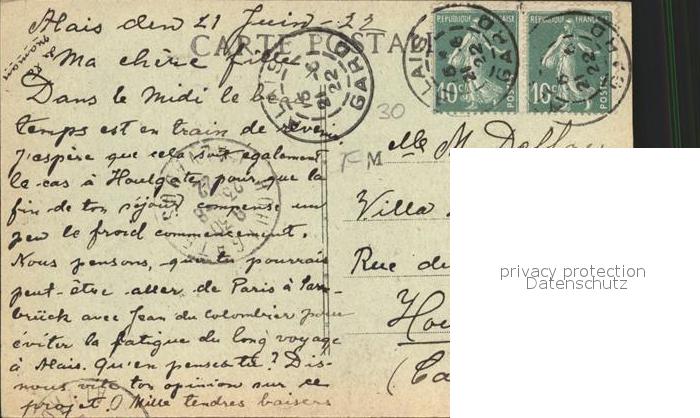 Alais den 21 Juin - 22
CARTE POSTALE
Ma chère fille
Dans le Midi le beau
temps est en train de revenir,
j'espère que cela soit également
le cas à Houlgate, pour que la
fin de ton séjour compense un
peu le froid commencement.
Nous pensons, que tu pourrais
peut-être aller de Paris à Sarre-
brück avec Jean du colombier pour
éviter la fatigue du long voyage
à Alais. Qu'en penses tu? Dis-
nous vite ton opinion sur ce
projet. Mille tendres baisers
30
FM
Melle M.
Villa
Rue du
Hou
(Ca
ALAIS
GARD
21-6
22
REPUBLIQUE FRANÇAISE
10c POSTES
REPUBLIQUE FRANÇAISE
10c POSTES
ALAIS
GARD
21-6
22
privacy protection
Datenschutz